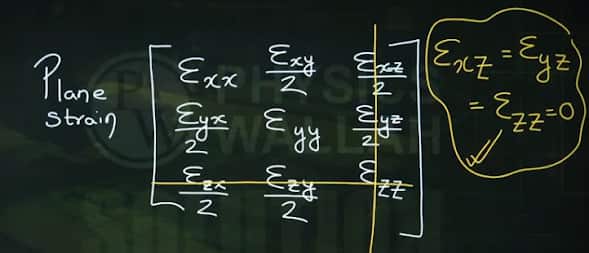 Plane
strain
εxx εxy/2 εxz/2
εyx/2 εyy εyz/2
εzx/2 εzy/2 εzz
εxz = εyz
= εzz=0
PHYSICS
WALLAH